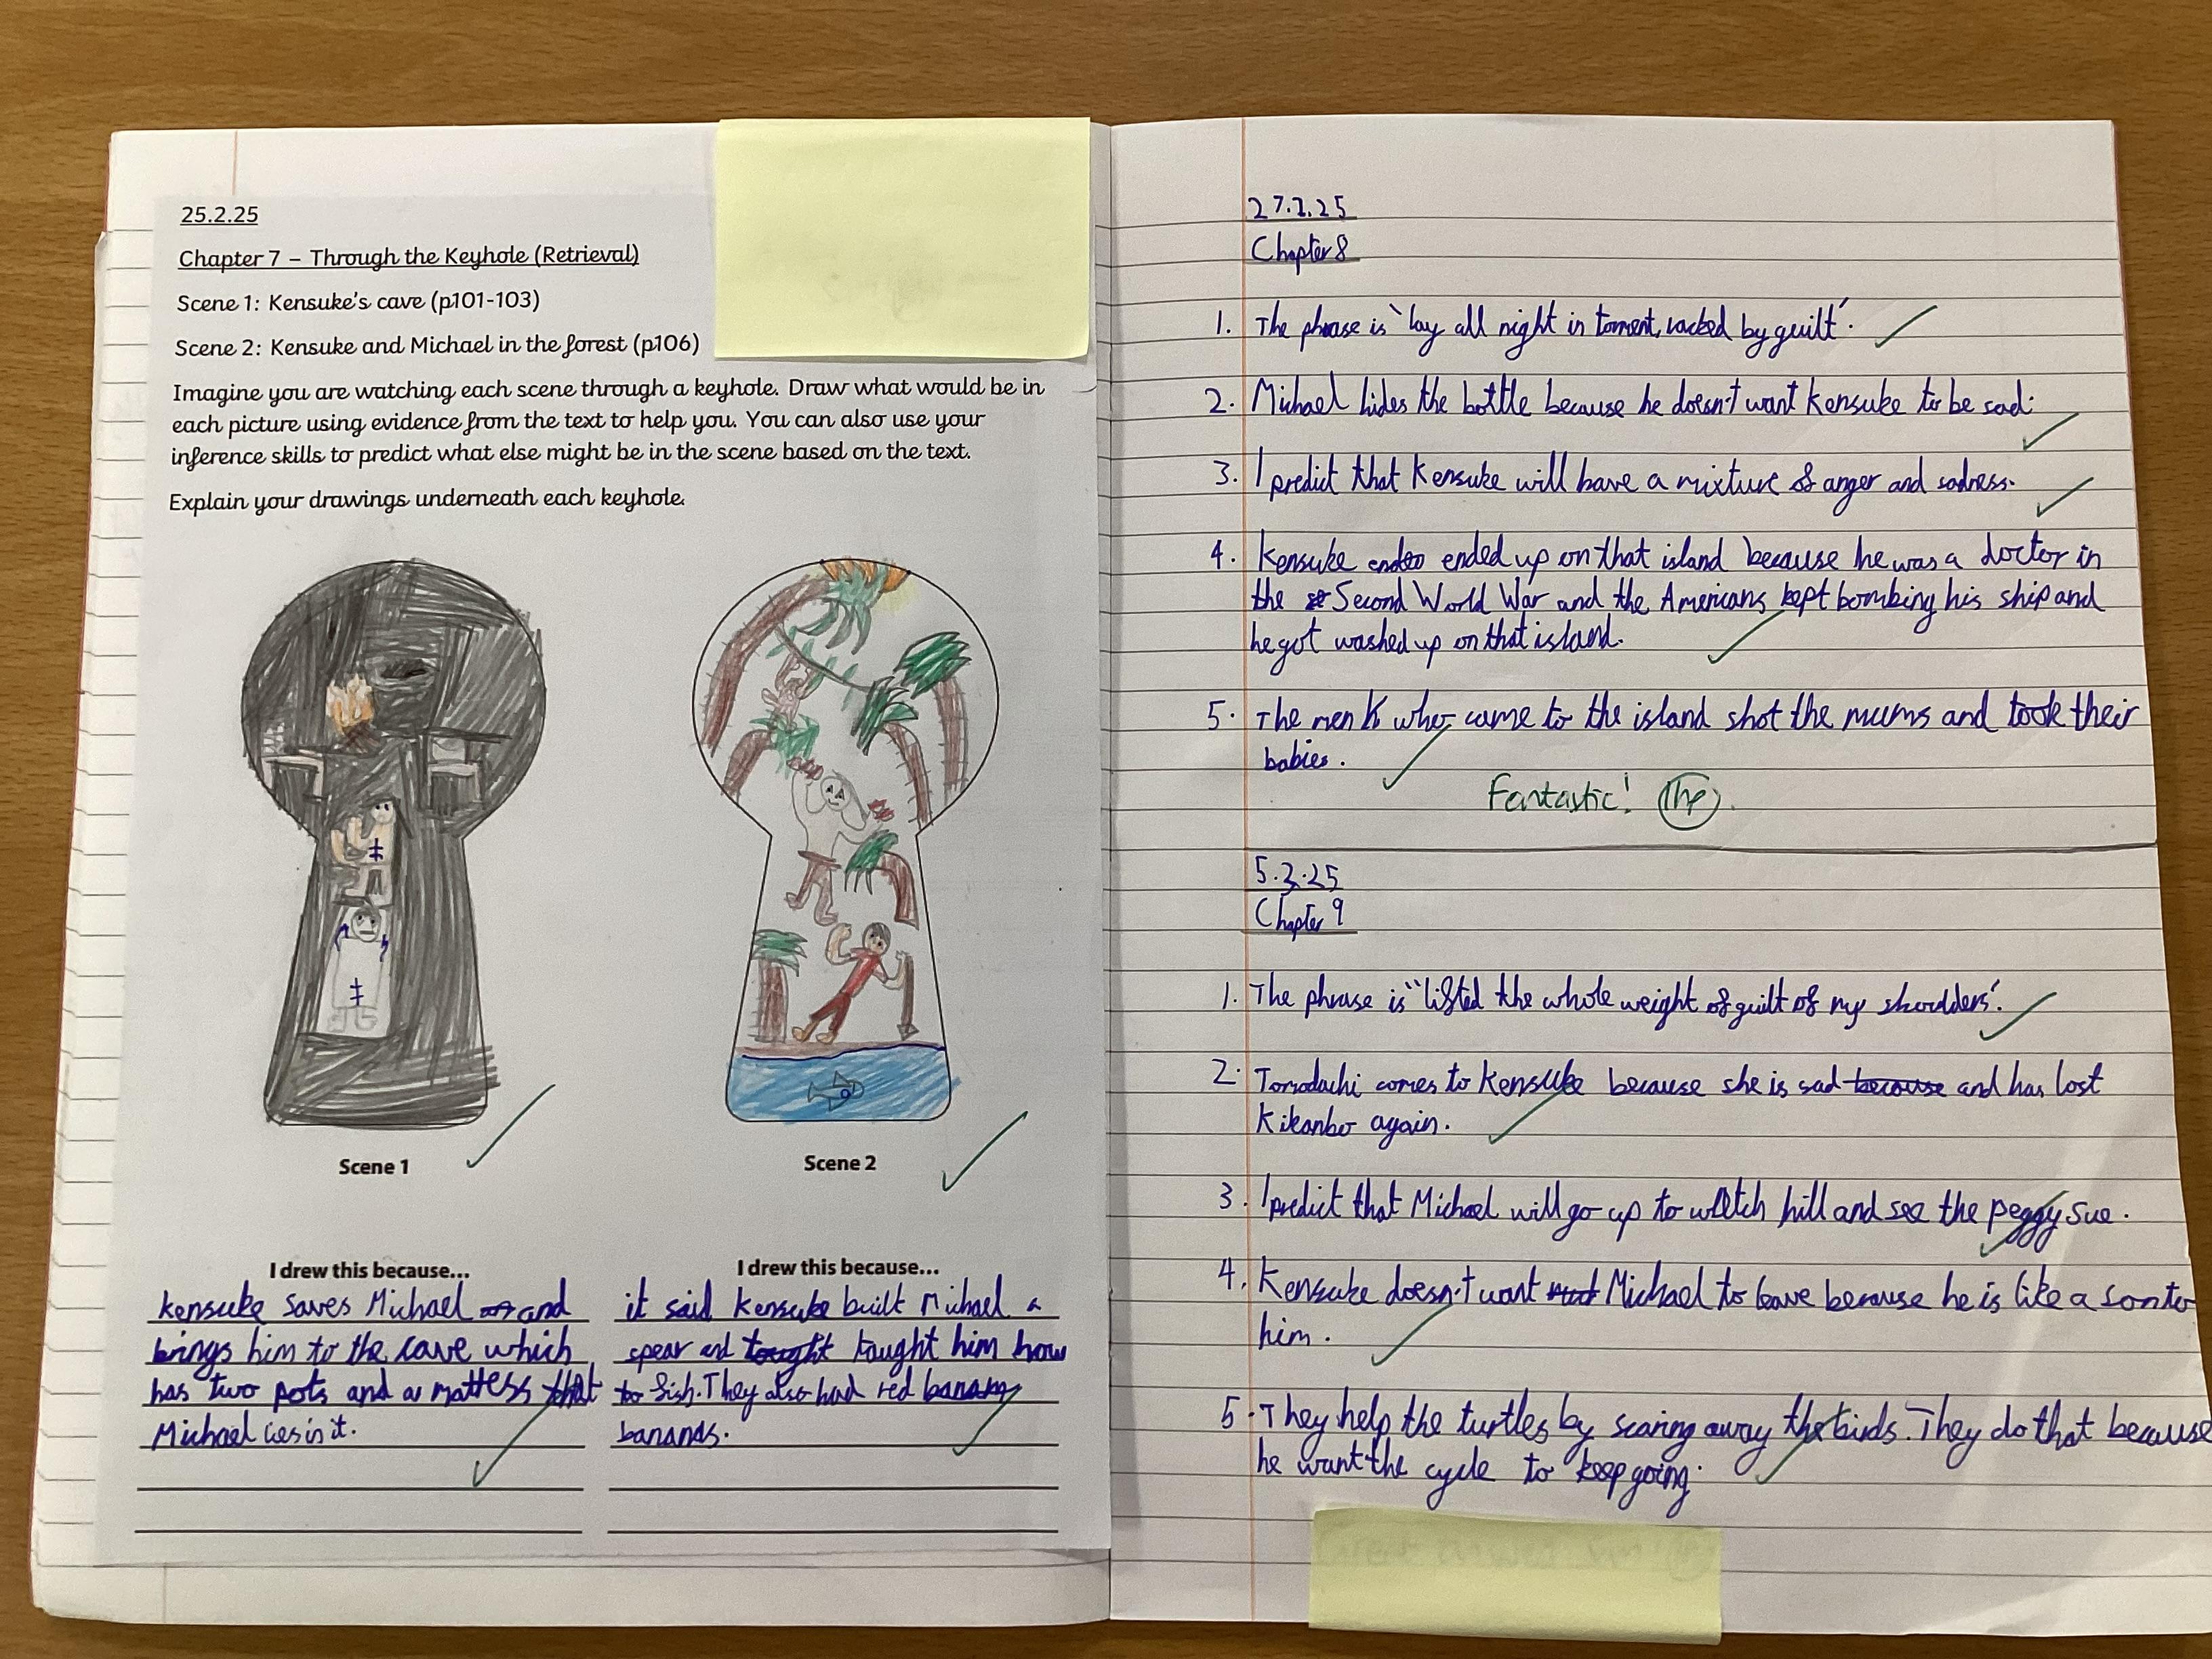 25.2.25
Chapter 7 – Through the Keyhole (Retrieval)
Scene 1: Kensuke's cave (p101-103)
Scene 2: Kensuke and Michael in the forest (p106)
Imagine you are watching each scene through a keyhole. Draw what would be in
each picture using evidence from the text to help you. You can also use your
inference skills to predict what else might be in the scene based on the text.
Explain your drawings underneath each keyhole.
Scene 1
I drew this because...
kensuke saves Michael and
brings him to the cave which
has two pots and a mattess that
Michael lies in it.
Scene 2
I drew this because...
it said Kensuke built Michael a
spear and tought taught him how
to fish. They also had red banans
bananas.
27.2.25
Chapter 8
1. The phrase is 'lay all night in torment, racked by guilt'.
2. Michael hides the bottle because he doesn't want Kensuke to be sad.
3. I predict that Kensuke will have a mixture of anger and sadness.
4. Kensuke ended up on that island because he was a doctor in
the Second World War and the Americans kept bombing his ship and
he got washed up on that island.
5. The men who came to the island shot the mums and took their
babies.
Fantastic!
5.3.25
Chapter 9
1. The phrase is "lifted the whole weight of guilt of my shoulders'.
2. Tomodachi comes to Kensuke because she is sad because and has lost
Kikanbo again.
3. I predict that Michael will go up to watch hill and see the peggy sue.
4. Kensuke doesn't want Michael to leave because he is like a son to
him.
5. They help the turtles by scaring away the birds. They do that because
he want the cycle to keep going.